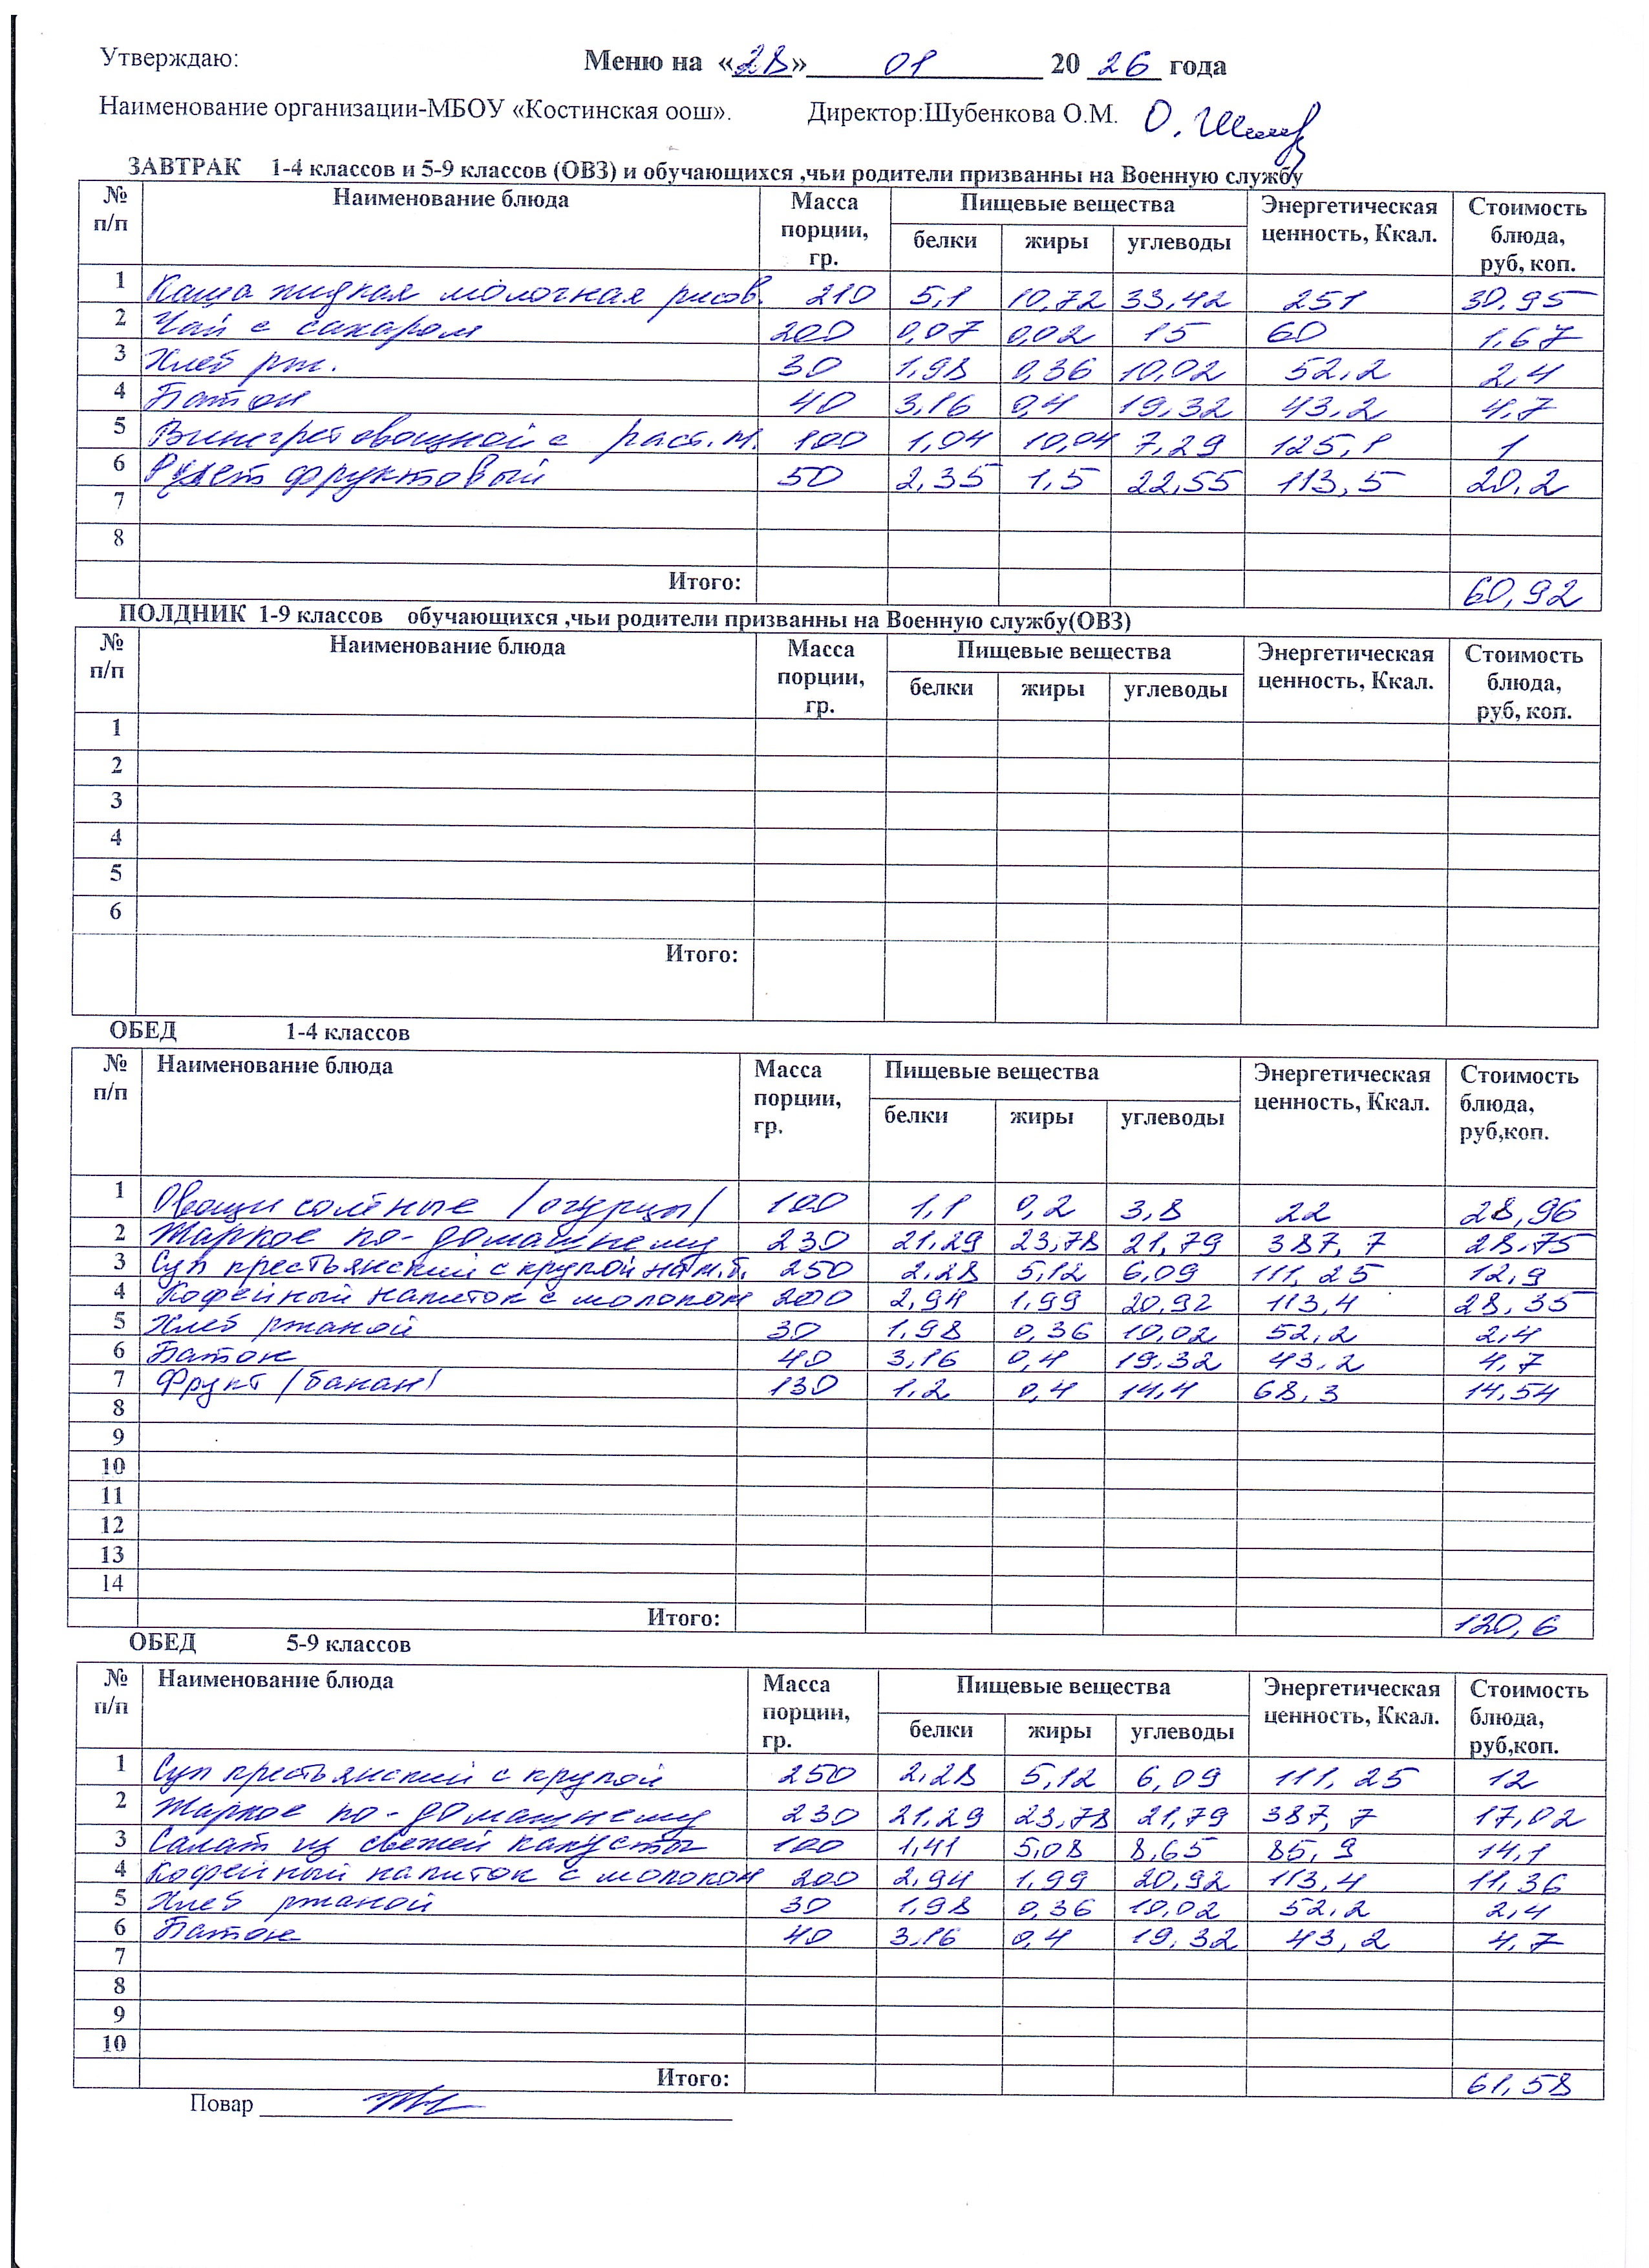 Утверждаю: Меню на «28» 01 20 26 года
Наименование организации-МБОУ «Костинская оош». Директор:Шубенкова О.М.
ЗАВТРАК 1-4 классов и 5-9 классов (ОВЗ) и обучающихся ,чьи родители призванны на Военную службу
№ п/п Наименование блюда Масса порции, гр. Пищевые вещества Энергетическая ценность, Ккал. Стоимость блюда, руб, коп.
белки жиры углеводы
1 Каша жидкая молочная рисов. 210 5,1 10,72 33,42 251 30,95
2 Чай с сахаром 200 0,07 0,02 15 60 1,67
3 Хлеб рж. 30 1,98 0,36 10,02 52,2 2,4
4 Батон 40 3,16 0,4 19,32 43,2 4,7
5 Винегрет овощной с раст.м. 100 1,04 10,04 7,29 125,1 1
6 Рулет фруктовый 50 2,35 1,5 22,55 113,5 20,2
7
8
Итого: 60,92
ПОЛДНИК 1-9 классов обучающихся ,чьи родители призванны на Военную службу(ОВЗ)
№ п/п Наименование блюда Масса порции, гр. Пищевые вещества Энергетическая ценность, Ккал. Стоимость блюда, руб, коп.
белки жиры углеводы
1
2
3
4
5
6
Итого:
ОБЕД 1-4 классов
№ п/п Наименование блюда Масса порции, гр. Пищевые вещества Энергетическая ценность, Ккал. Стоимость блюда, руб,коп.
белки жиры углеводы
1 Овощи солёные /огурцы/ 100 1,1 0,2 3,8 22 28,96
2 Жаркое по-домашнему 230 21,29 23,78 21,79 387,7 28,75
3 Суп крестьянский с крупой на м.б. 250 2,28 5,12 6,09 111,25 12,9
4 Кофейный напиток с молоком 200 2,94 1,99 20,92 113,4 28,35
5 Хлеб ржаной 30 1,98 0,36 10,02 52,2 2,4
6 Батон 40 3,16 0,4 19,32 43,2 4,7
7 Фрукт /банан/ 130 1,2 0,4 14,4 68,3 14,54
8
9
10
11
12
13
14
Итого: 120,6
ОБЕД 5-9 классов
№ п/п Наименование блюда Масса порции, гр. Пищевые вещества Энергетическая ценность, Ккал. Стоимость блюда, руб,коп.
белки жиры углеводы
1 Суп крестьянский с крупой 250 2,28 5,12 6,09 111,25 12
2 Жаркое по-домашнему 230 21,29 23,78 21,79 387,7 17,02
3 Салат из свежей капусты 100 1,41 5,08 8,65 85,9 14,1
4 Кофейный напиток с молоком 200 2,94 1,99 20,92 113,4 11,36
5 Хлеб ржаной 30 1,98 0,36 10,02 52,2 2,4
6 Батон 40 3,16 0,4 19,32 43,2 4,7
7
8
9
10
Итого: 61,58
Повар